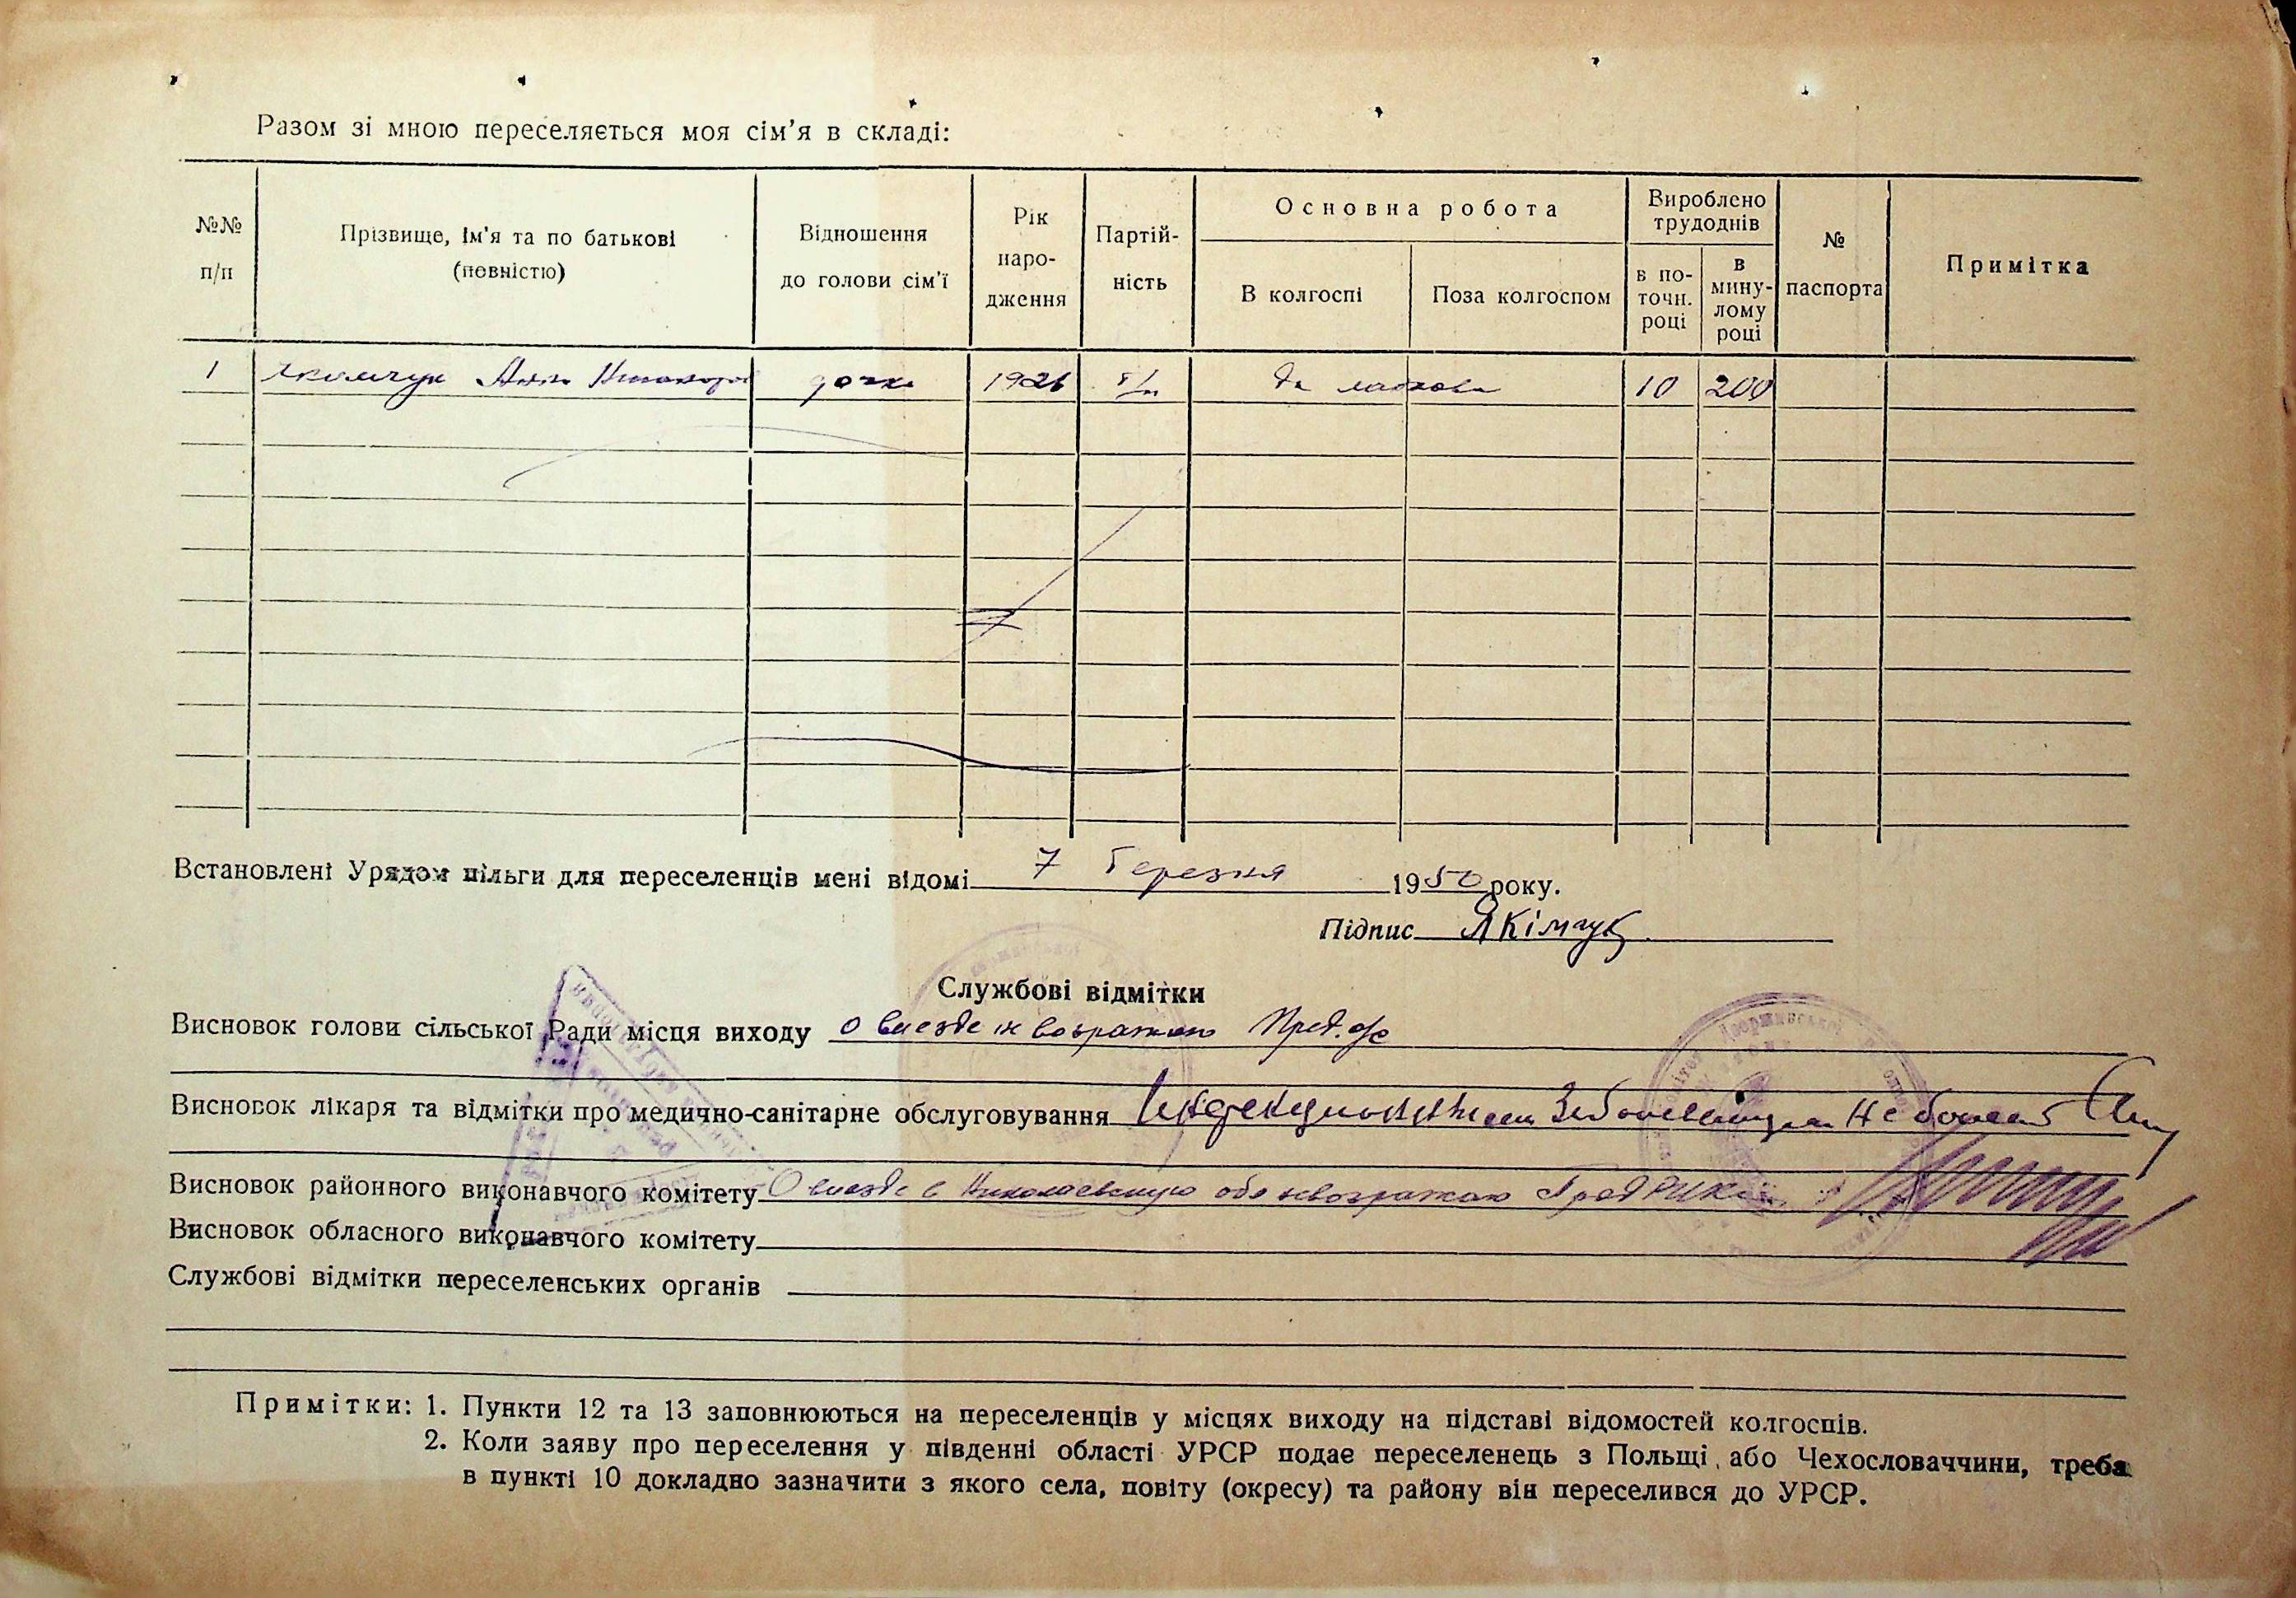 Разом зі мною переселяється моя сім'я в складі:
№№ п/п
Прізвище, ім'я та по батькові (повністю)
Відношення до голови сім'ї
Рік народження
Партійність
Основна робота
В колгоспі
Поза колгоспом
Вироблено трудоднів
в поточн. році
в минулому році
№ паспорта
Примітка
1 Якимчук Анна дочка 1926 б/п 10 200
Встановлені Урядом пільги для переселенців мені відомі 7 березня 1950 року.
Підпис Якімчук
Службові відмітки
Висновок голови сільської Ради місця виходу о выезде не возражаю Пред. с/с
Висновок лікаря та відмітки про медично-санітарне обслуговування Инфекционными заболеваниями не болеет
Висновок районного виконавчого комітету О выезде в Николаевскую обл невозражаю Пред РИКа
Висновок обласного виконавчого комітету
Службові відмітки переселенських органів
Примітки: 1. Пункти 12 та 13 заповнюються на переселенців у місцях виходу на підставі відомостей колгоспів.
2. Коли заяву про переселення у південні області УРСР подає переселенець з Польщі, або Чехословаччини, треба
в пункті 10 докладно зазначити з якого села, повіту (окресу) та району він переселився до УРСР.